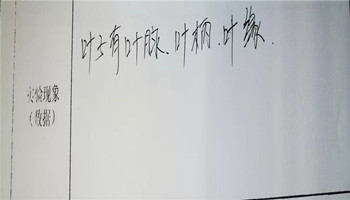 叶子有叶脉、叶柄、叶缘.
实验现象
(数据)